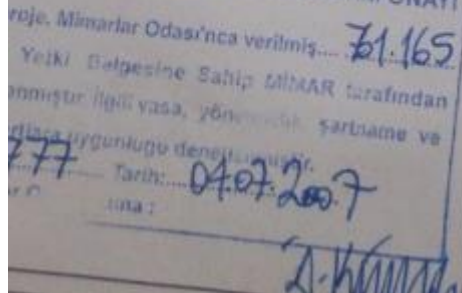 roje, Mimarlar Odası'nca verilmiş.... 61.165
Yetki Belgesine Sahip MİMAR tarafından
anmıştır ilgili yasa, yönetmelik, şartname ve
uygunluğu denetlenmiştir.
777 Tarih:....04.07.2007